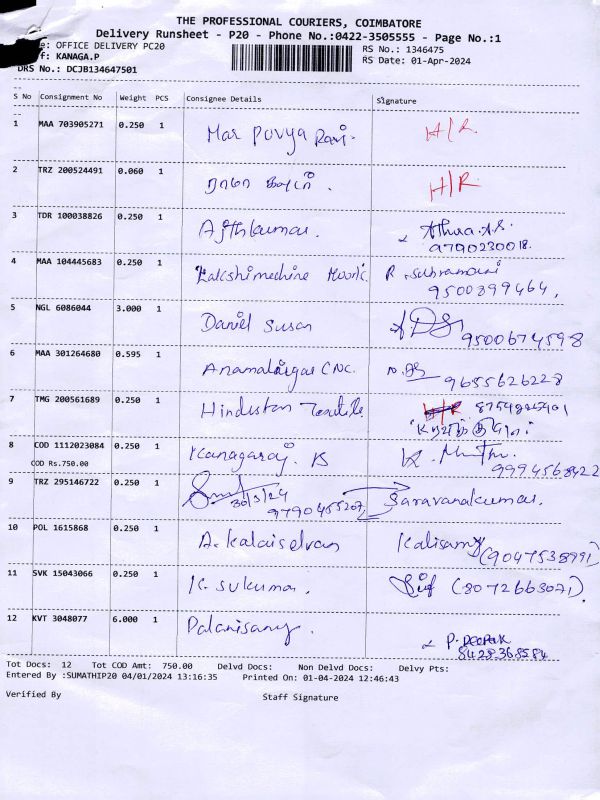 THE PROFESSIONAL COURIERS, COIMBATORE
Delivery Runsheet - P20 - Phone No.:0422-3505555 - Page No.:1
e: OFFICE DELIVERY PC20
RS No.: 1346475
f: KANAGA.P
RS Date: 01-Apr-2024
DRS No.: DCJB134647501
S No Consignment No Weight PCS Consignee Details Signature
1 MAA 703905271 0.250 1 Ravi. H/R
2 TRZ 200524491 0.060 1 H/R
3 TDR 100038826 0.250 1 Ajithkumar. Athira.A.S.
9790230018.
4 MAA 104445683 0.250 1 Lakshimechine Work. R. Subramani
9500899464,
5 NGL 6086044 3.000 1 Daniel Susan
9500674598
6 MAA 301264680 0.595 1 CNC.
9655626228
7 TMG 200561689 0.250 1 Hindustan Textile H/R
8 COD 1112023084 0.250 1 Kanagaraj. K. Muthu.
COD Rs.750.00 9994568422
9 TRZ 295146722 0.250 1 30/3/24 Saravanakumar.
9790455207
10 POL 1615868 0.250 1 A. Kalaiselvan Kalisamy
(9047538991)
11 SVK 15043066 0.250 1 K. Sukumar. (8072663071).
12 KVT 3048077 6.000 1 Palanisamy. P. DEEPAK
8428368584
Tot Docs: 12 Tot COD Amt: 750.00 Delvd Docs: Non Delvd Docs: Delvy Pts:
Entered By :SUMATHIP20 04/01/2024 13:16:35 Printed On: 01-04-2024 12:46:43
Verified By Staff Signature